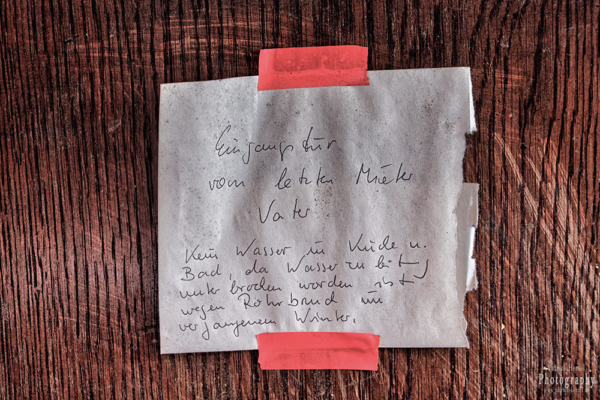 Eingangstür
vom letzten Mieter
Vater
Kein Wasser in Küche u.
Bad, da Wasser
unterbrochen worden ist
wegen Rohrbruch im
vergangenem Winter.
Photography